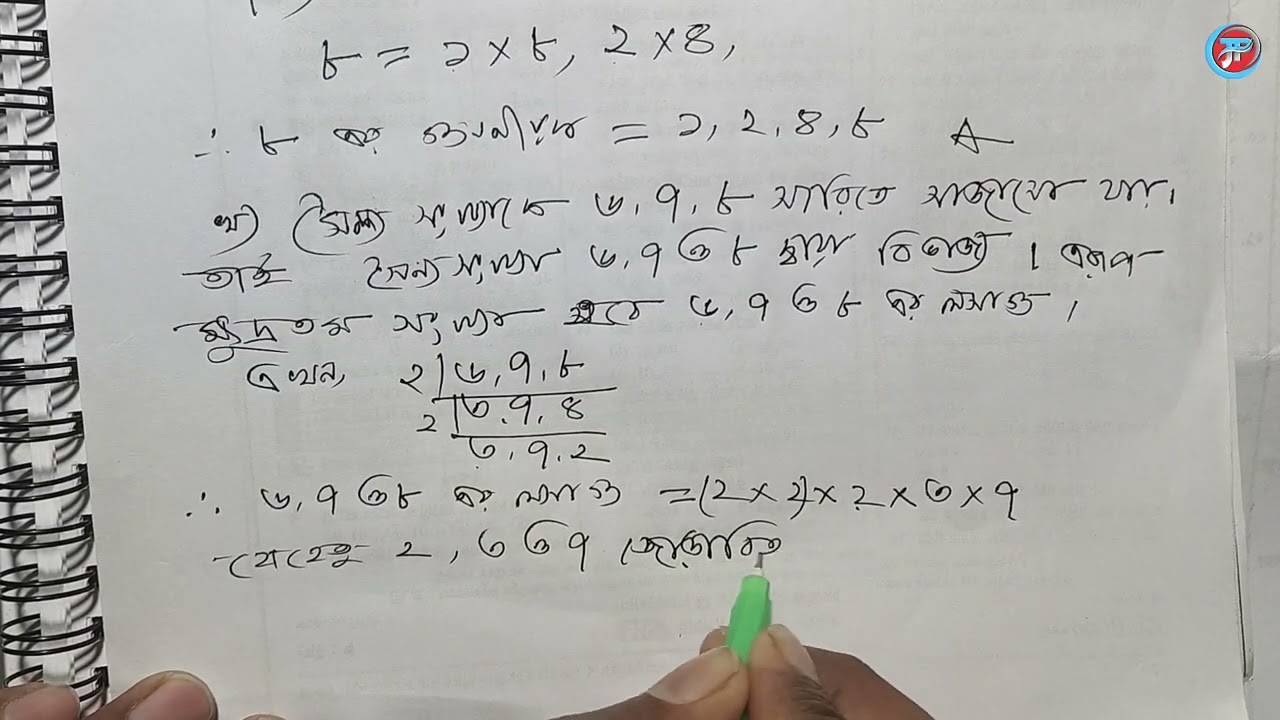 ৮ = ১ × ৮, ২ × ৪,
∴ ৮ এর গুণনীয়ক = ১, ২, ৪, ৮ A
খ) সৈন্য সংখ্যাকে ৬, ৭, ৮ সারিতে সাজানো যায়।
তাই সৈন্যসংখ্যা ৬, ৭ ও ৮ দ্বারা বিভাজ্য। এরূপ
ক্ষুদ্রতম সংখ্যা হবে ৬, ৭ ও ৮ এর লসাগু।
এখন, ২ | ৬, ৭, ৮
২ | ৩, ৭, ৪
৩, ৭, ২
∴ ৬, ৭ ও ৮ এর লসাগু = (২ × ২) × ২ × ৩ × ৭
যেহেতু ২, ৩ ও ৭ জোড়াবিহ